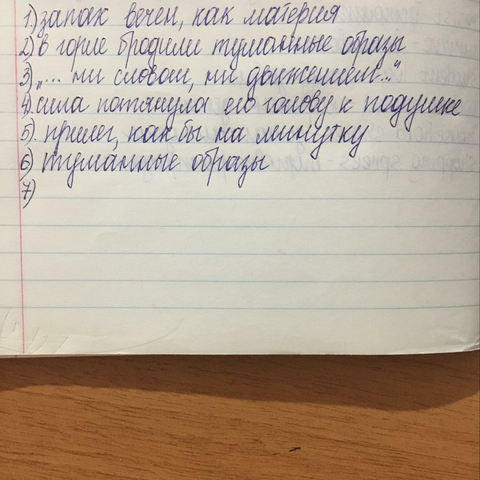 1) запах вечен, как материя
2) в горле бродили туманные образы
3) „... ни словом, ни движением..."
4) сила потянула его голову к подушке
5) прилег, как бы на минутку
6) туманные образы
7)